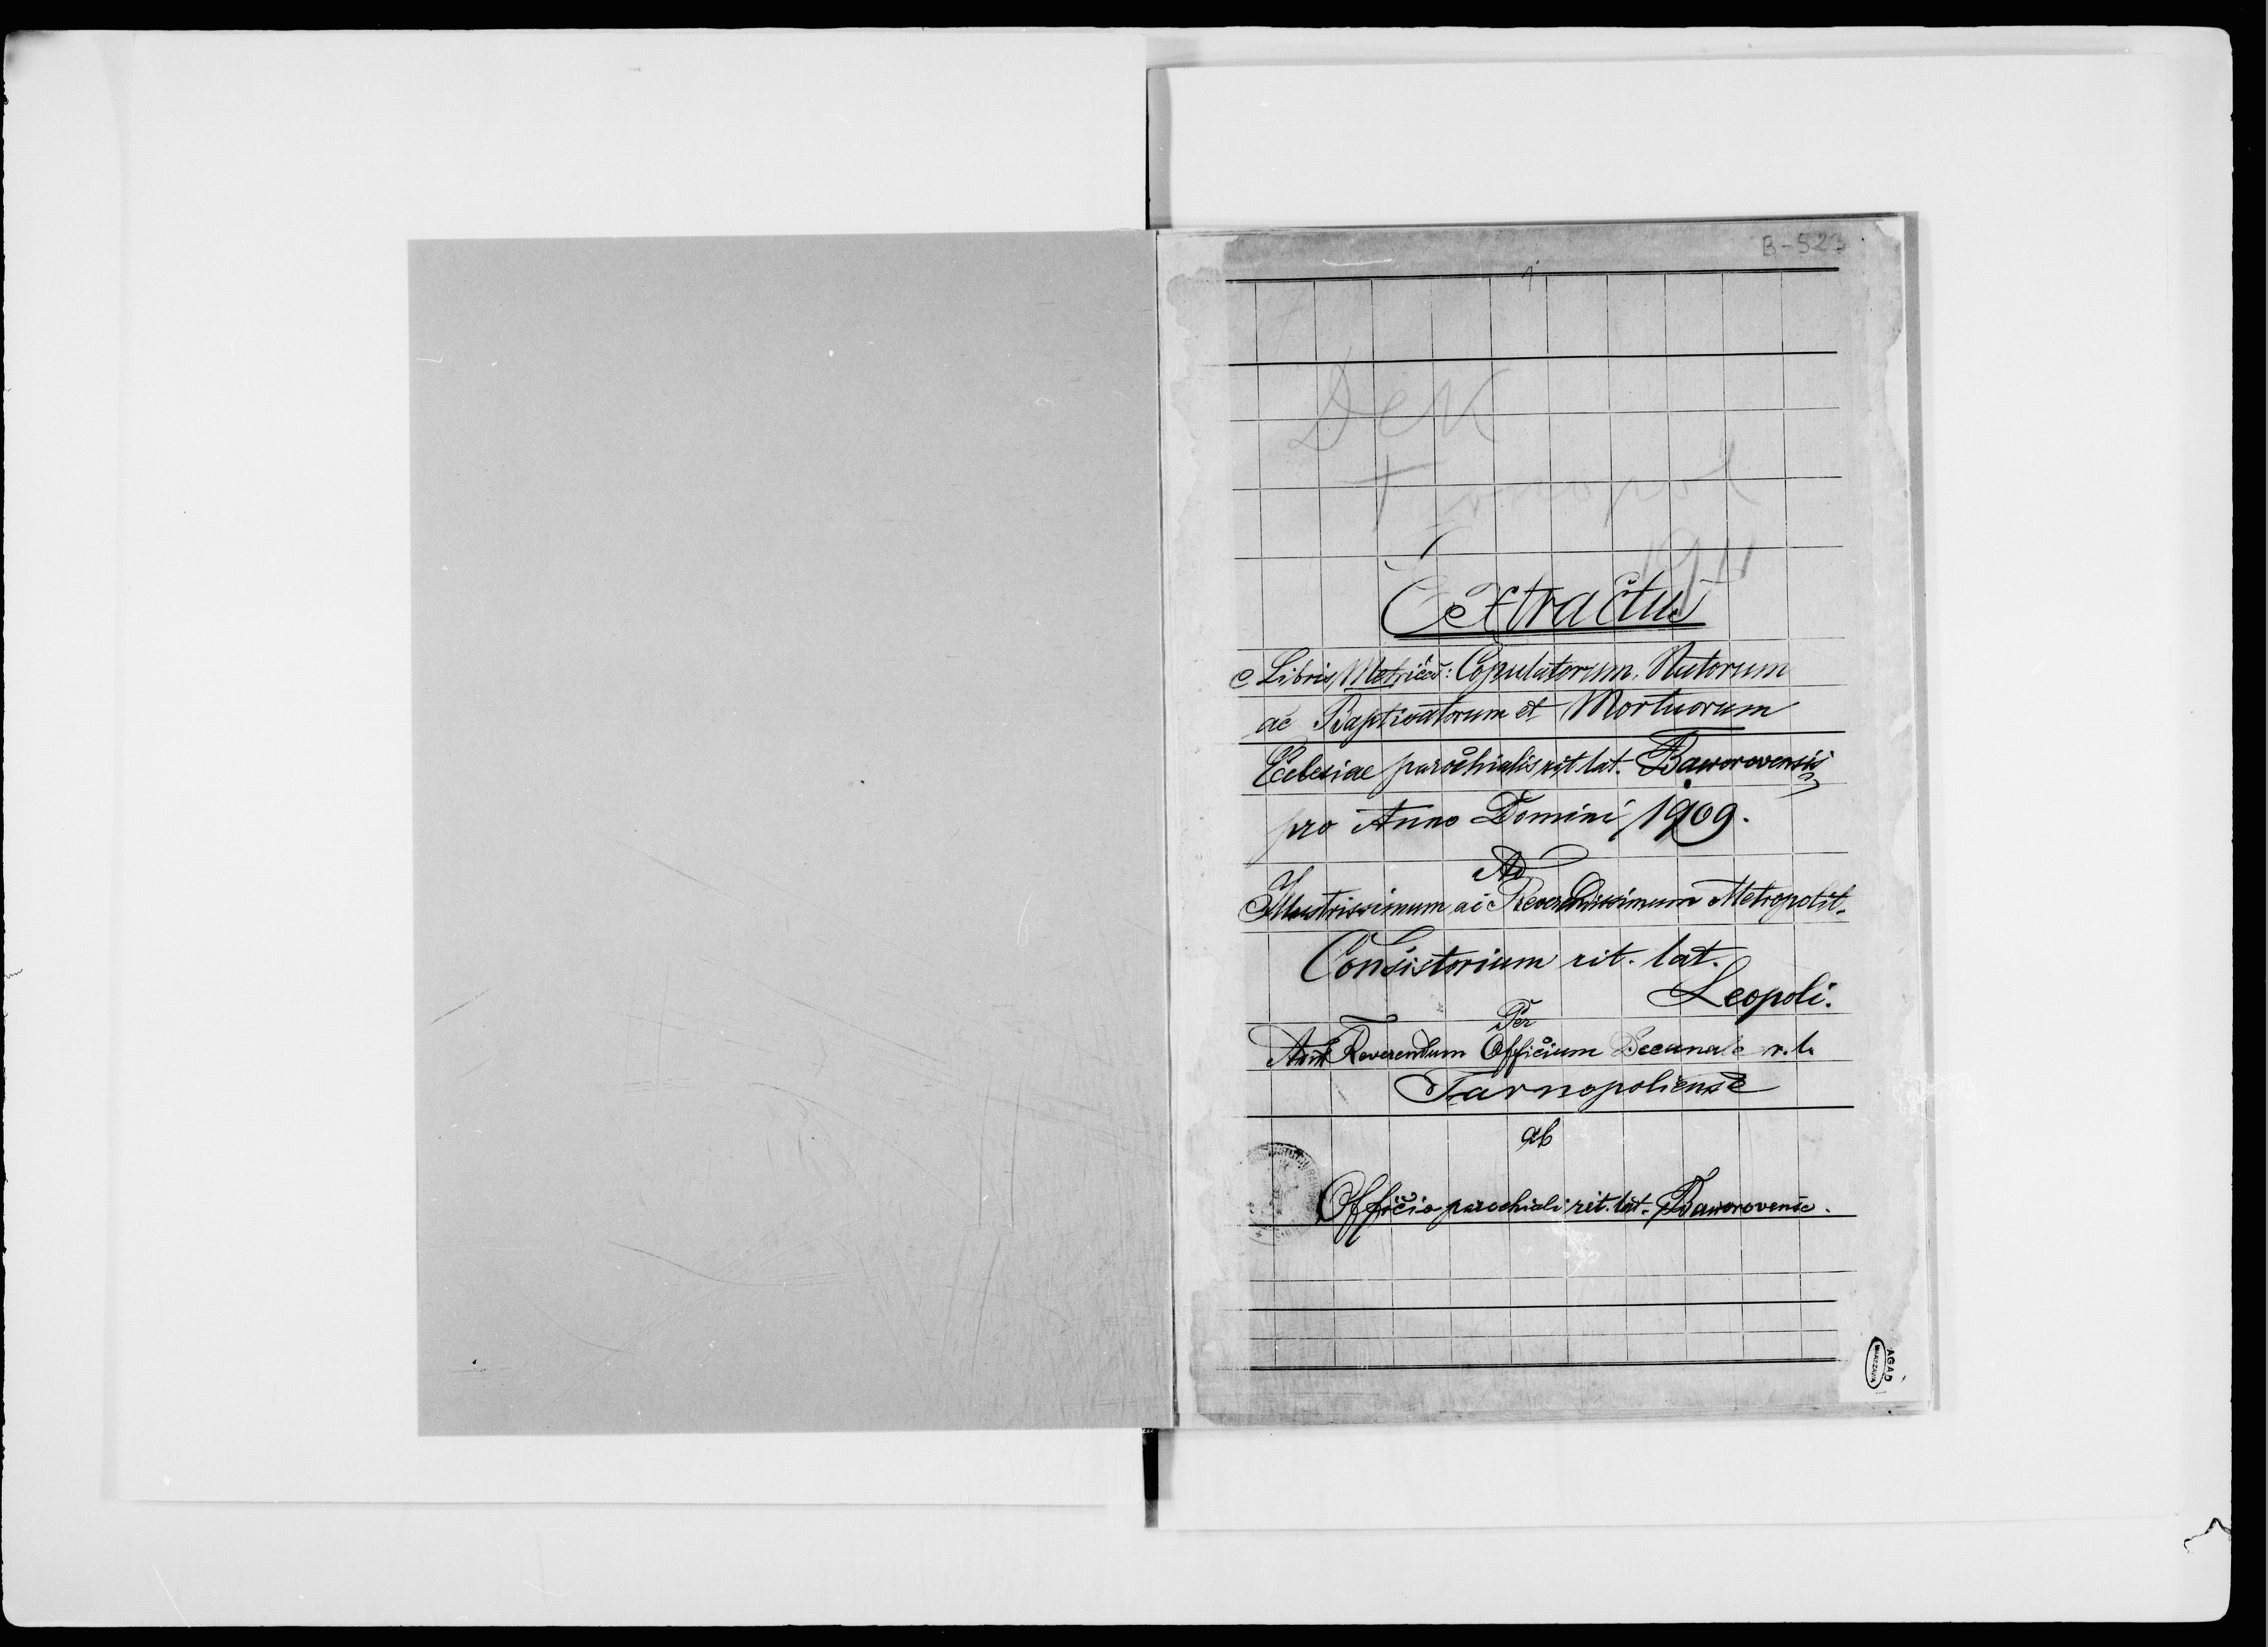 B-523
1
Dek
Tarnopol
1911
Extractus
e Libris Metrices: Copulatorum, Natorum
ac Baptisatorum et Mortuorum
Ecclesiae parochialis rit. lat. Baworovensis
pro Anno Domini 1909.
Ad
Illustrissimum ac Reverendissimum Metropolit.
Consistorium rit. lat.
Leopoli.
Per
Reverendum Officium Decanale r. l.
Tarnopoliense
ab
Officio parochiali rit. lat. Baworovense.
AGAD
WARSZAWA